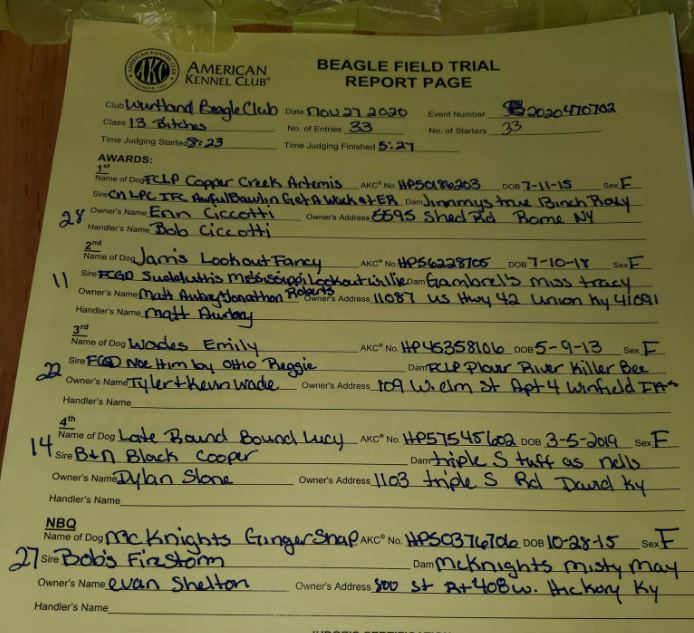 AMERICAN KENNEL CLUB®
AKC
AMERICAN KENNEL CLUB
FOUNDED 1884
BEAGLE FIELD TRIAL
REPORT PAGE
Club Wurtland Beagle Club Date Nov 27 2020 Event Number 2020470702
Class 13 Bitches No. of Entries 33 No. of Starters 33
Time Judging Started 8:23 Time Judging Finished 5:27
AWARDS:
1st
Name of Dog FCLP Copper Creek Artemis AKC® No. HP50186203 DOB 7-11-15 Sex F
Sire CH LPC IFC Awful Bawlin Get A Wack at ER Dam Jimmys true Binch Roxy
28 Owner's Name Erin Ciccotti Owner's Address 5595 Shed Rd Rome NY
Handler's Name Bob Ciccotti
2nd
Name of Dog Jam's Lookout Fancy AKC® No. HP56228705 DOB 7-10-18 Sex F
11 Sire FCGD Mississippi Lookout Willie Dam Gambrel's miss tracy
Owner's Name Matt Jonathon Roberts Owner's Address 11087 us Hwy 42 Union Ky 41091
Handler's Name Matt
3rd
Name of Dog Wades Emily AKC® No. HP45358106 DOB 5-9-13 Sex F
22 Sire Noe Him by OHIO Reggie Dam FCLP Plover River Killer Bee
Owner's Name Tyler + Kevin Wade Owner's Address 109 W elm St Apt 4 Winfield
Handler's Name
4th
14 Name of Dog Late Round Bound Lucy AKC® No. HP57545602 DOB 3-5-2019 Sex F
Sire B+N Black Cooper Dam triple S tuff as nells
Owner's Name Dylan Slone Owner's Address 1103 triple S Rd David Ky
Handler's Name
NBQ
Name of Dog McKnights GingerSnap AKC® No. HP50376706 DOB 10-28-15 Sex F
27 Sire Bob's Firestorm Dam McKnights Misty May
Owner's Name evan Shelton Owner's Address 800 St Rt 408 w. Hickory Ky
Handler's Name